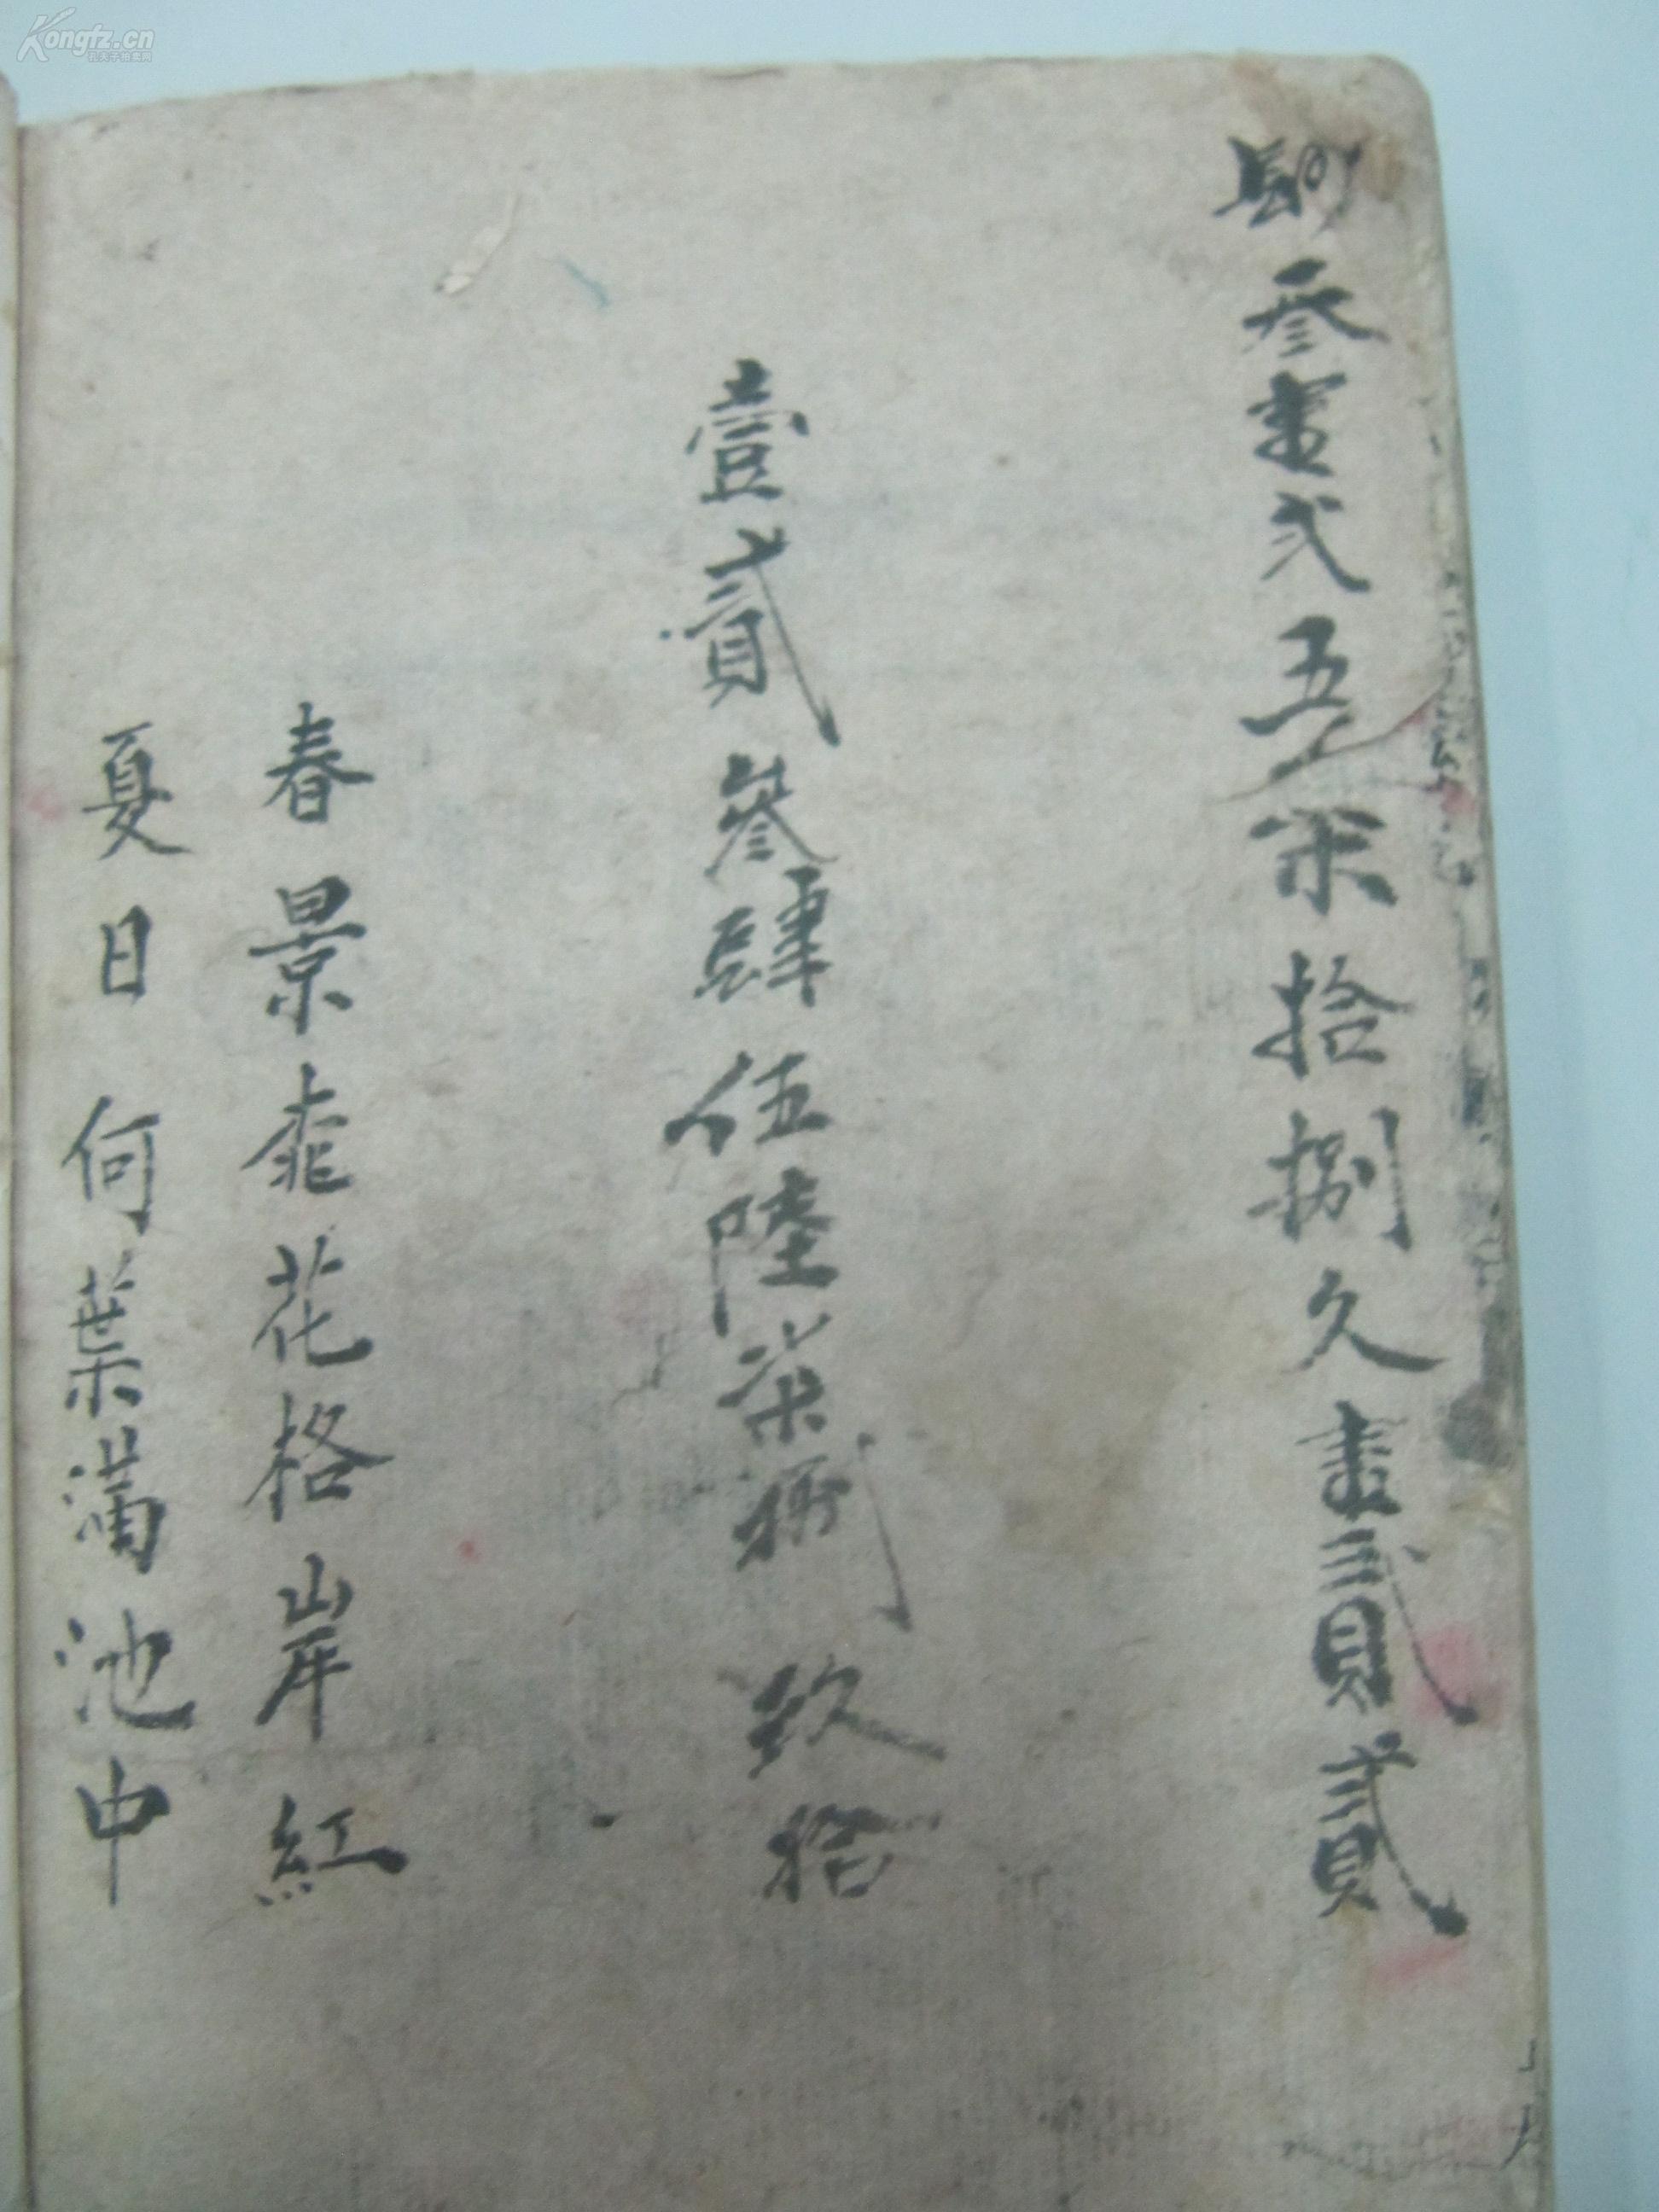 叁壹弍五柒拾捌久壹貳貳
壹貳叄肆伍陸柒捌玖拾
春景桃花格岸紅
夏日何葉滿池中
Kongfz.cn